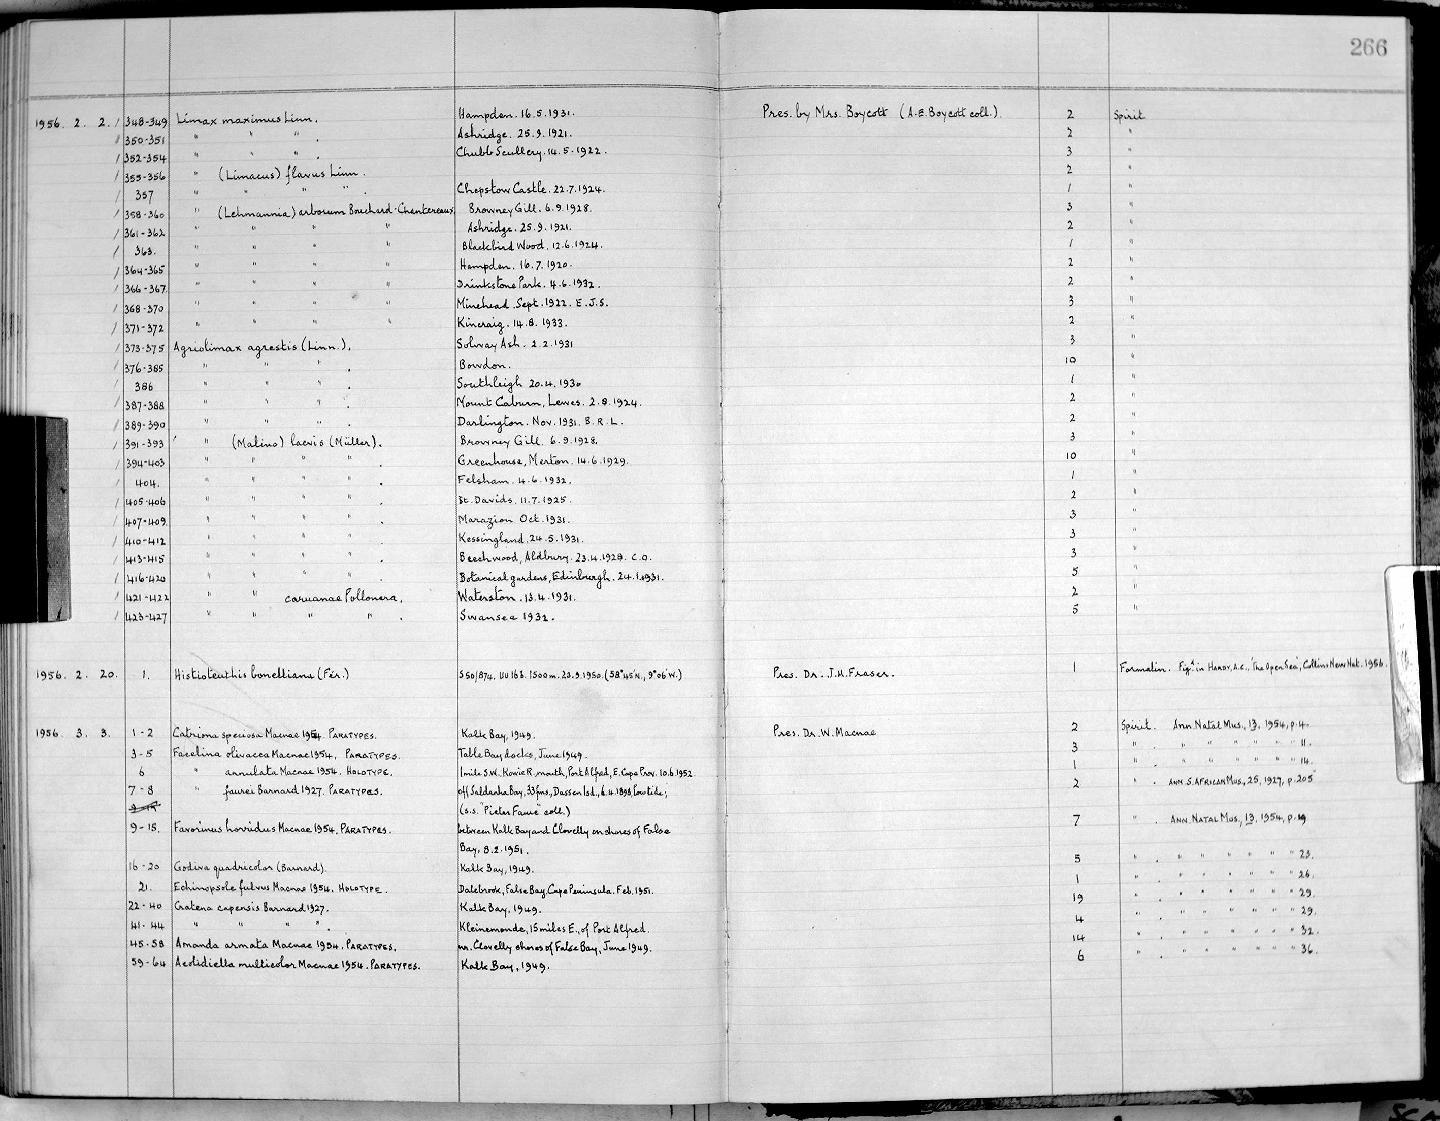 266
1956. 2. 2. / 348-349 Limax maximus Linn. Hampden. 16.5.1931. Pres. by Mrs. Boycott (A.E. Boycott coll.) 2 Spirit
/ 350-351 " " " . Ashridge. 25.9.1921. 2 "
/ 352-354 " " " . Chubb Scullery. 14.5.1922. 3 "
/ 355-356 " (Limacus) flavus Linn. 2 "
/ 357 " " " " . Chepstow Castle. 22.7.1924. 1 "
/ 358-360 " (Lehmannia) arborum Bouchard-Chantereaux Browney Gill. 6.9.1928. 3 "
/ 361-362 " " " " Ashridge. 25.9.1921. 2 "
/ 363. " " " " Blackbird Wood. 12.6.1924. 1 "
/ 364-365 " " " " Hampden. 16.7.1920. 2 "
/ 366-367. " " " " Drinkstone Park. 4.6.1932. 2 "
/ 368-370 " " " " Minehead. Sept. 1922. E.J.S. 3 "
/ 371-372 " " " " Kincraig. 14.8.1933. 2 "
/ 373-375 Agriolimax agrestis (Linn.). Solway Ash. 2.2.1931 3 "
/ 376-385 " " " . Bowdon. 10 "
/ 386 " " " . Southleigh 20.4.1930 1 "
/ 387-388 " " " . Mount Caburn, Lewes. 2.8.1924. 2 "
/ 389-390 " " " . Darlington. Nov. 1931. B.R.L. 2 "
/ 391-393 " (Malino) laevis (Müller). Browney Gill. 6.9.1928. 3 "
/ 394-403 " " " " . Greenhouse, Merton. 14.6.1929. 10 "
/ 404. " " " " . Felsham. 4.6.1932. 1 "
/ 405-406 " " " " . St. Davids. 11.7.1925. 2 "
/ 407-409. " " " " . Marazion Oct. 1931. 3 "
/ 410-412 " " " " . Kessingland. 24.5.1931. 3 "
/ 413-415 " " " " . Beechwood, Aldbury. 23.4.1928. C.O. 3 "
/ 416-420 " " " " . Botanical gardens, Edinburgh. 24.1.1931. 5 "
/ 421-422 " " caruanae Pollonera. Waterston. 13.4.1931. 2 "
/ 423-427 " " " " . Swansea 1932. 5 "
1956. 2. 20. 1. Histioteuthis bonelliana (Fér.) S50/874. 1500m. 23.9.1950. (58°45'N., 9°06'W.) Pres. Dr. J.H. Fraser. 1 Formalin. Figd. in HARDY, A.C., 'The Open Sea', Collins New Nat. 1956.
1956. 3. 3. 1-2 Catriona speciosa Macnae 1954. PARATYPES. Kalk Bay, 1949. Pres. Dr. W. Macnae 2 Spirit. ANN. Natal Mus., 13, 1954, p.4.
3-5 Facelina olivacea Macnae 1954. PARATYPES. Table Bay docks, June 1949. 3 " . " " " " " 11.
6 " annulata Macnae 1954. HOLOTYPE. 1 mile S.W. Kowie R. mouth, Port Alfred, E. Cape Prov. 10.6.1952. 1 " . " " " " " 14.
7-8 " faurei Barnard 1927. PARATYPES. off Saldanha Bay, 33 fms, Dassen Isd., 6.4.1898, low tide; 2 " . ANN. S. AFRICAN MUS., 25, 1927, p.205
9-15 (S.S. "Pieter Faure" coll.)
9-15. Favorinus horridus Macnae 1954. PARATYPES. between Kalk Bay and Clovelly on shores of False 7 " . ANN. NATAL MUS., 13, 1954, p.19
Bay, 8.2.1951.
16-20 Godiva quadricolor (Barnard). Kalk Bay, 1949. 5 " . " " " " " " 23.
21. Echinopsole fulvus Macnae 1954. HOLOTYPE. Dalebrook, False Bay, Cape Peninsula. Feb. 1951. 1 " . " " " " " " 26.
22-40 Cratena capensis Barnard 1927. Kalk Bay, 1949. 19 " . " " " " " " 29.
41-44 " " " . Kleinemonde, 15 miles E., of Port Alfred. 4 " . " " " " " " 29.
45-58 Amanda armata Macnae 1954. PARATYPES. nr. Clovelly shores of False Bay, June 1949. 14 " . " " " " " " 32.
59-64 Aeolidiella multicolor Macnae 1954. PARATYPES. Kalk Bay, 1949. 6 " . " " " " " " 36.